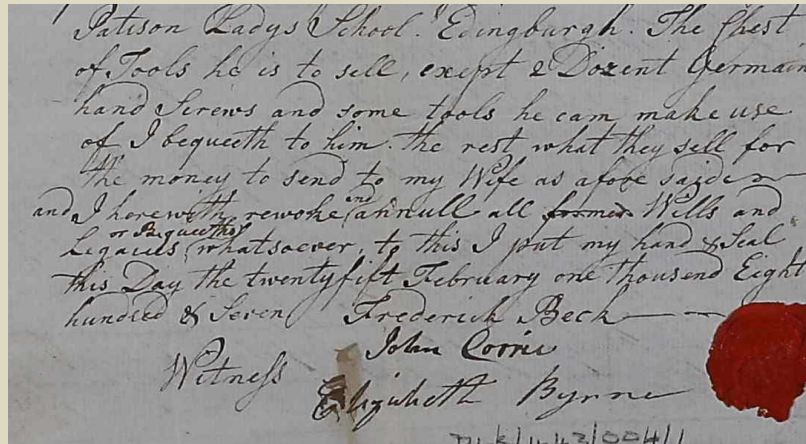 Patison Ladys School. Edingburgh. The Chest
of Tools he is to sell, exept 2 Dozent Germain
hand Screws and some tools he cam make use
of I bequeeth to him. the rest what they sell for
the money to send to my Wife as afore saide
and I herewith rewoke and annull all former Wills and
Legacies or Bequeths whatsoever, to this I put my hand & Seal
this Day the twentyfift February one thousend Eight
hundred & Seven Frederick Beck
John Corrie
Witness
Elizabeth Byrne